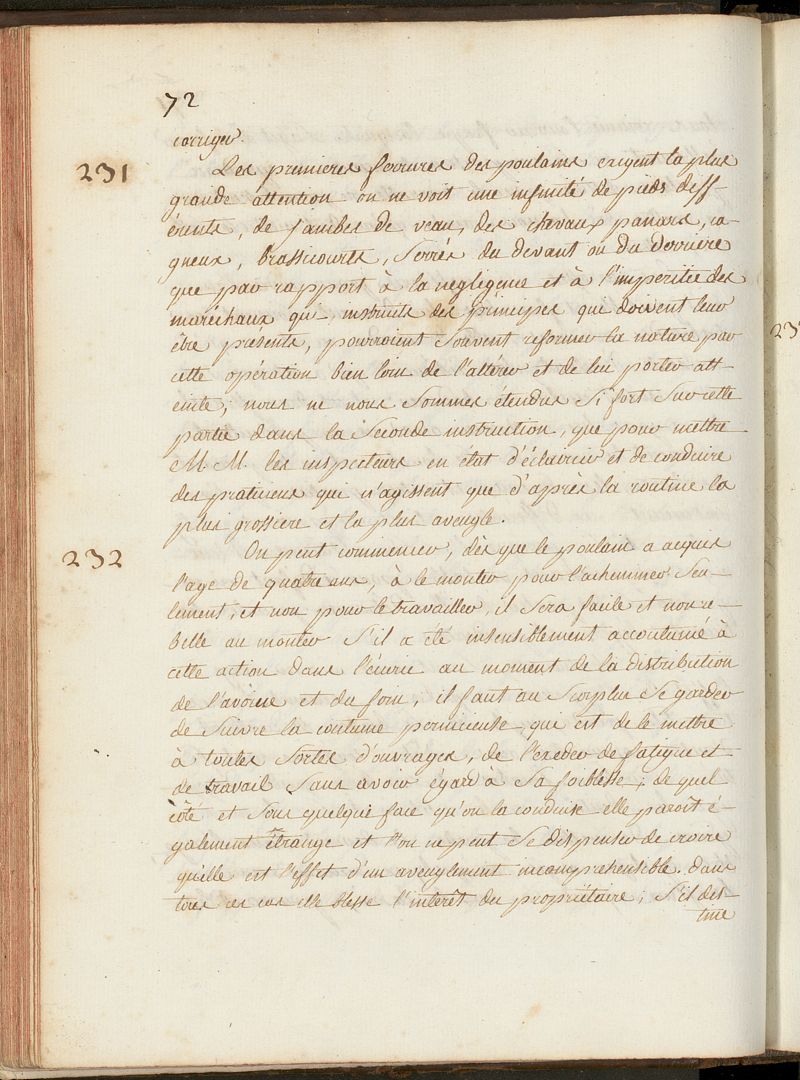 72
corriger.
231 Les premieres ferrures des poulains exigent la plus
grande attention on ne voit une infinité de pieds diff-
érents, de jambes de veau, des chevaux panars, ca-
gneux, brassicourts, serrés du devant ou du derriere
que par rapport à la negligence et à l'imperitie des
maréchaux qui, instruits des principes qui doivent leur
être présents, pourroient souvent reformer la nature par
cette opération bien loin de l'altérer et de lui porter att-
einte; nous ne nous sommes étendus si fort sur cette
partie dans la seconde instruction, que pour mettre
M. M. les inspecteurs en état d'éclaircir et de conduire
des praticiens qui n'agissent que d'après la routine la
plus grossiere et la plus aveugle.
232 On peut commencer, dès que le poulain a acquis
l'age de quatre ans, à le monter pour l'acheminer seu-
lement, et non pour le travailler, il sera facile et non re-
belle au monter s'il a été insensiblement accoutumé à
cette action dans l'écurie au moment de la distribution
de l'avoine et du foin, il faut au surplus se garder
de suivre la coutume pernicieuse qui est de le mettre
à toutes sortes d'ouvrages, de l'exceder de fatigue et
de travail sans avoir égard à sa foiblesse; de quel
côté et sous quelque face qu'on la conduise elle paroit é-
galement étrange et l'on ne peut se dispenser de croire
qu'elle est l'effet d'un aveuglement incomprehensible. dans
tous ces cas elle blesse l'interêt du propriétaire; s'il des-
tine
23